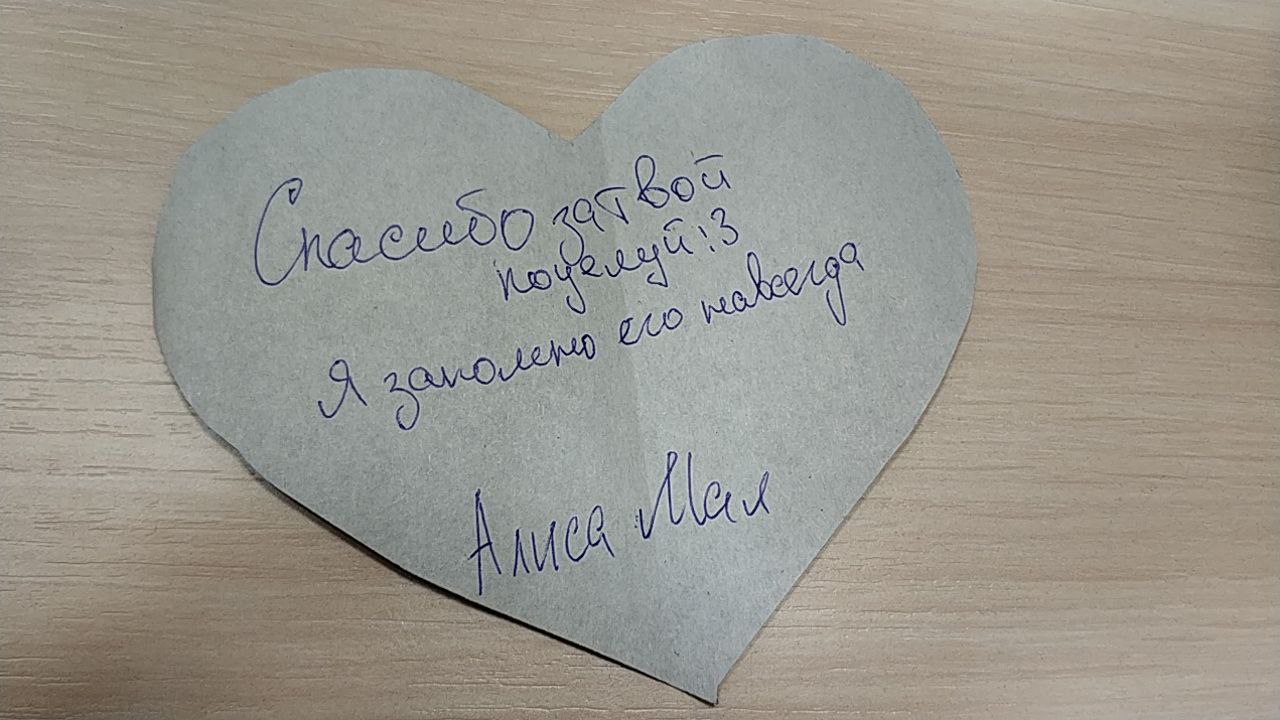 Спасибо за твой
поцелуй :3
Я заполню его навсегда
Алиса Мал